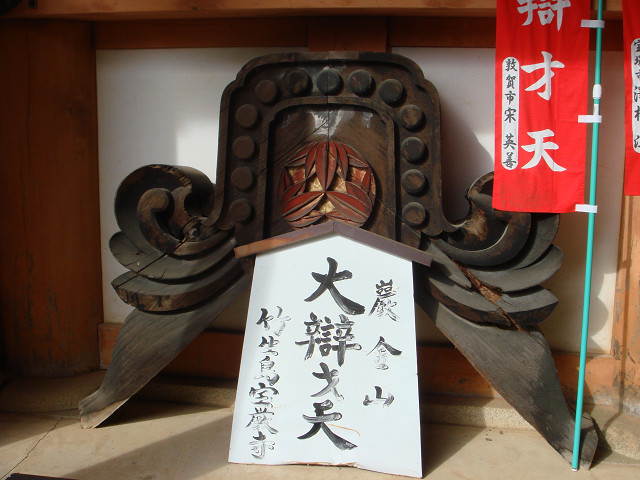 巖金山
大辯才天
竹生島宝厳寺
辯才天
敦賀市宋英善